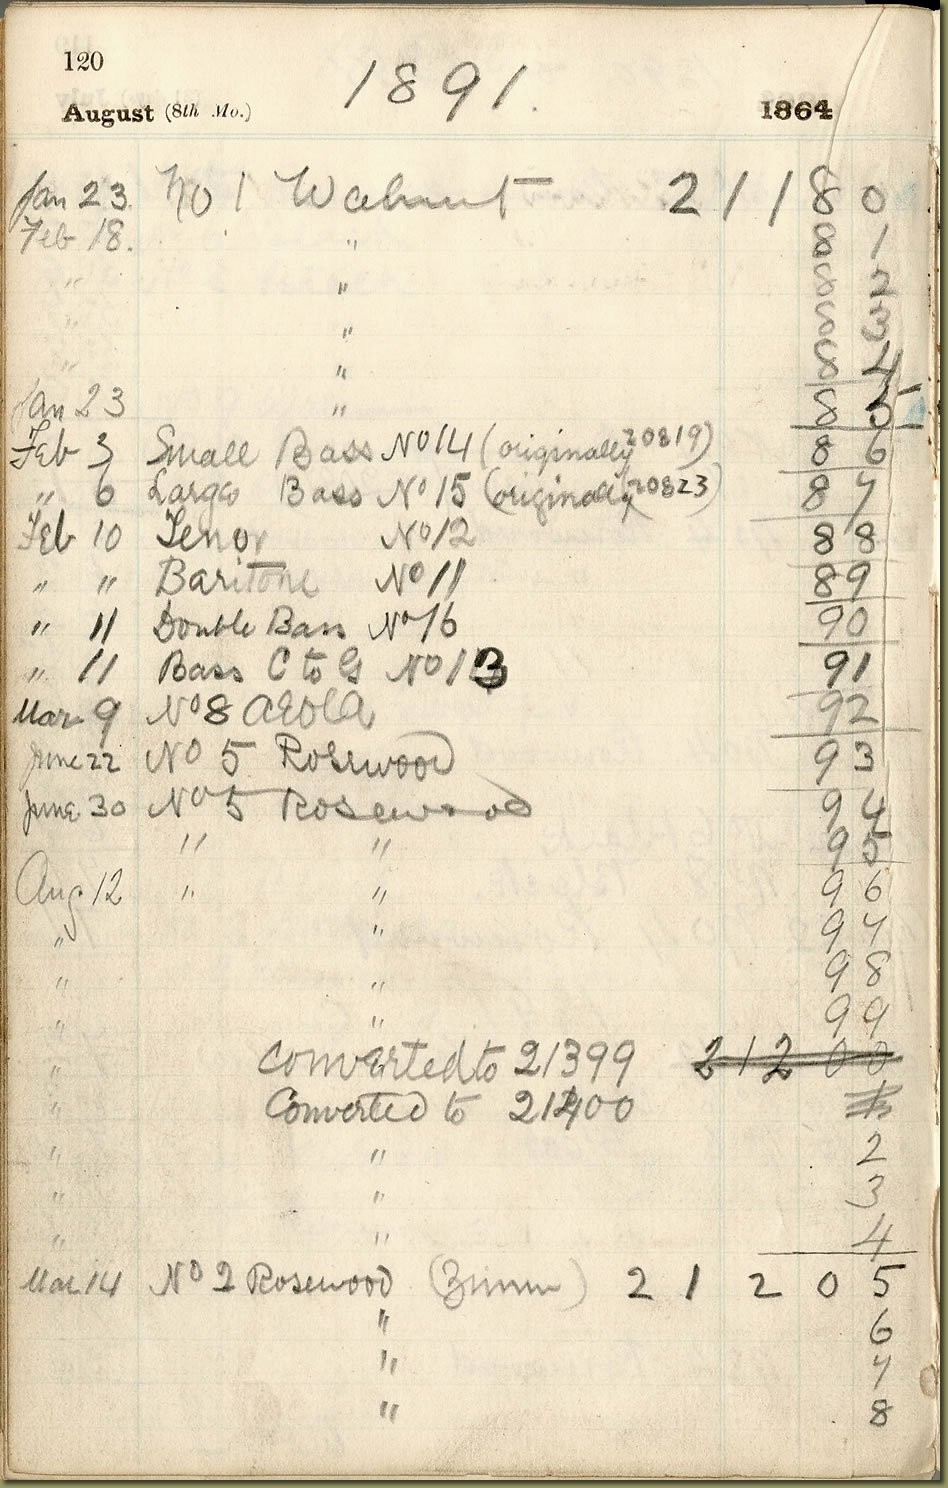 120
1891.
August (8th Mo.) 1864
Jan 23. No 1 Walnut 21180
Feb 18. " 81
" " 82
" " 83
" " 84
Jan 23 " 85
Feb 3 Small Bass No 14 (originally 20819) 86
" 6 Large Bass No 15 (originally 20823) 87
Feb 10 Tenor No 12 88
" " Baritone No 11 89
" 11 Double Bass No 16 90
" 11 Bass C to G No 13 91
Mar 9 No 8 Aeola 92
June 22 No 5 Rosewood 93
June 30 No 5 Rosewood 94
" " 95
Aug 12 " " 96
" " 97
" " 98
" " 99
" converted to 21399 21200
" Converted to 21400
" " 2
" " 3
" " 4
Mar 14 No 2 Rosewood (Zimm) 21205
" 6
" 7
" 8